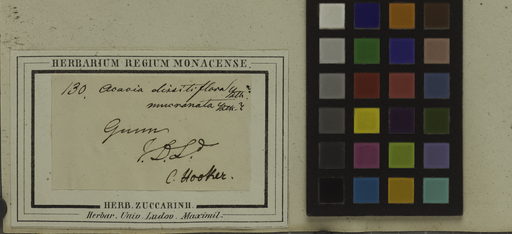 HERBARIUM REGIUM MONACENSE.
130. Acacia dissitiflora
mucronata
Gunn
V.D.L.d
C. Hooker.
HERB. ZUCCARINII.
Herbar. Univ. Ludov. Maximil.